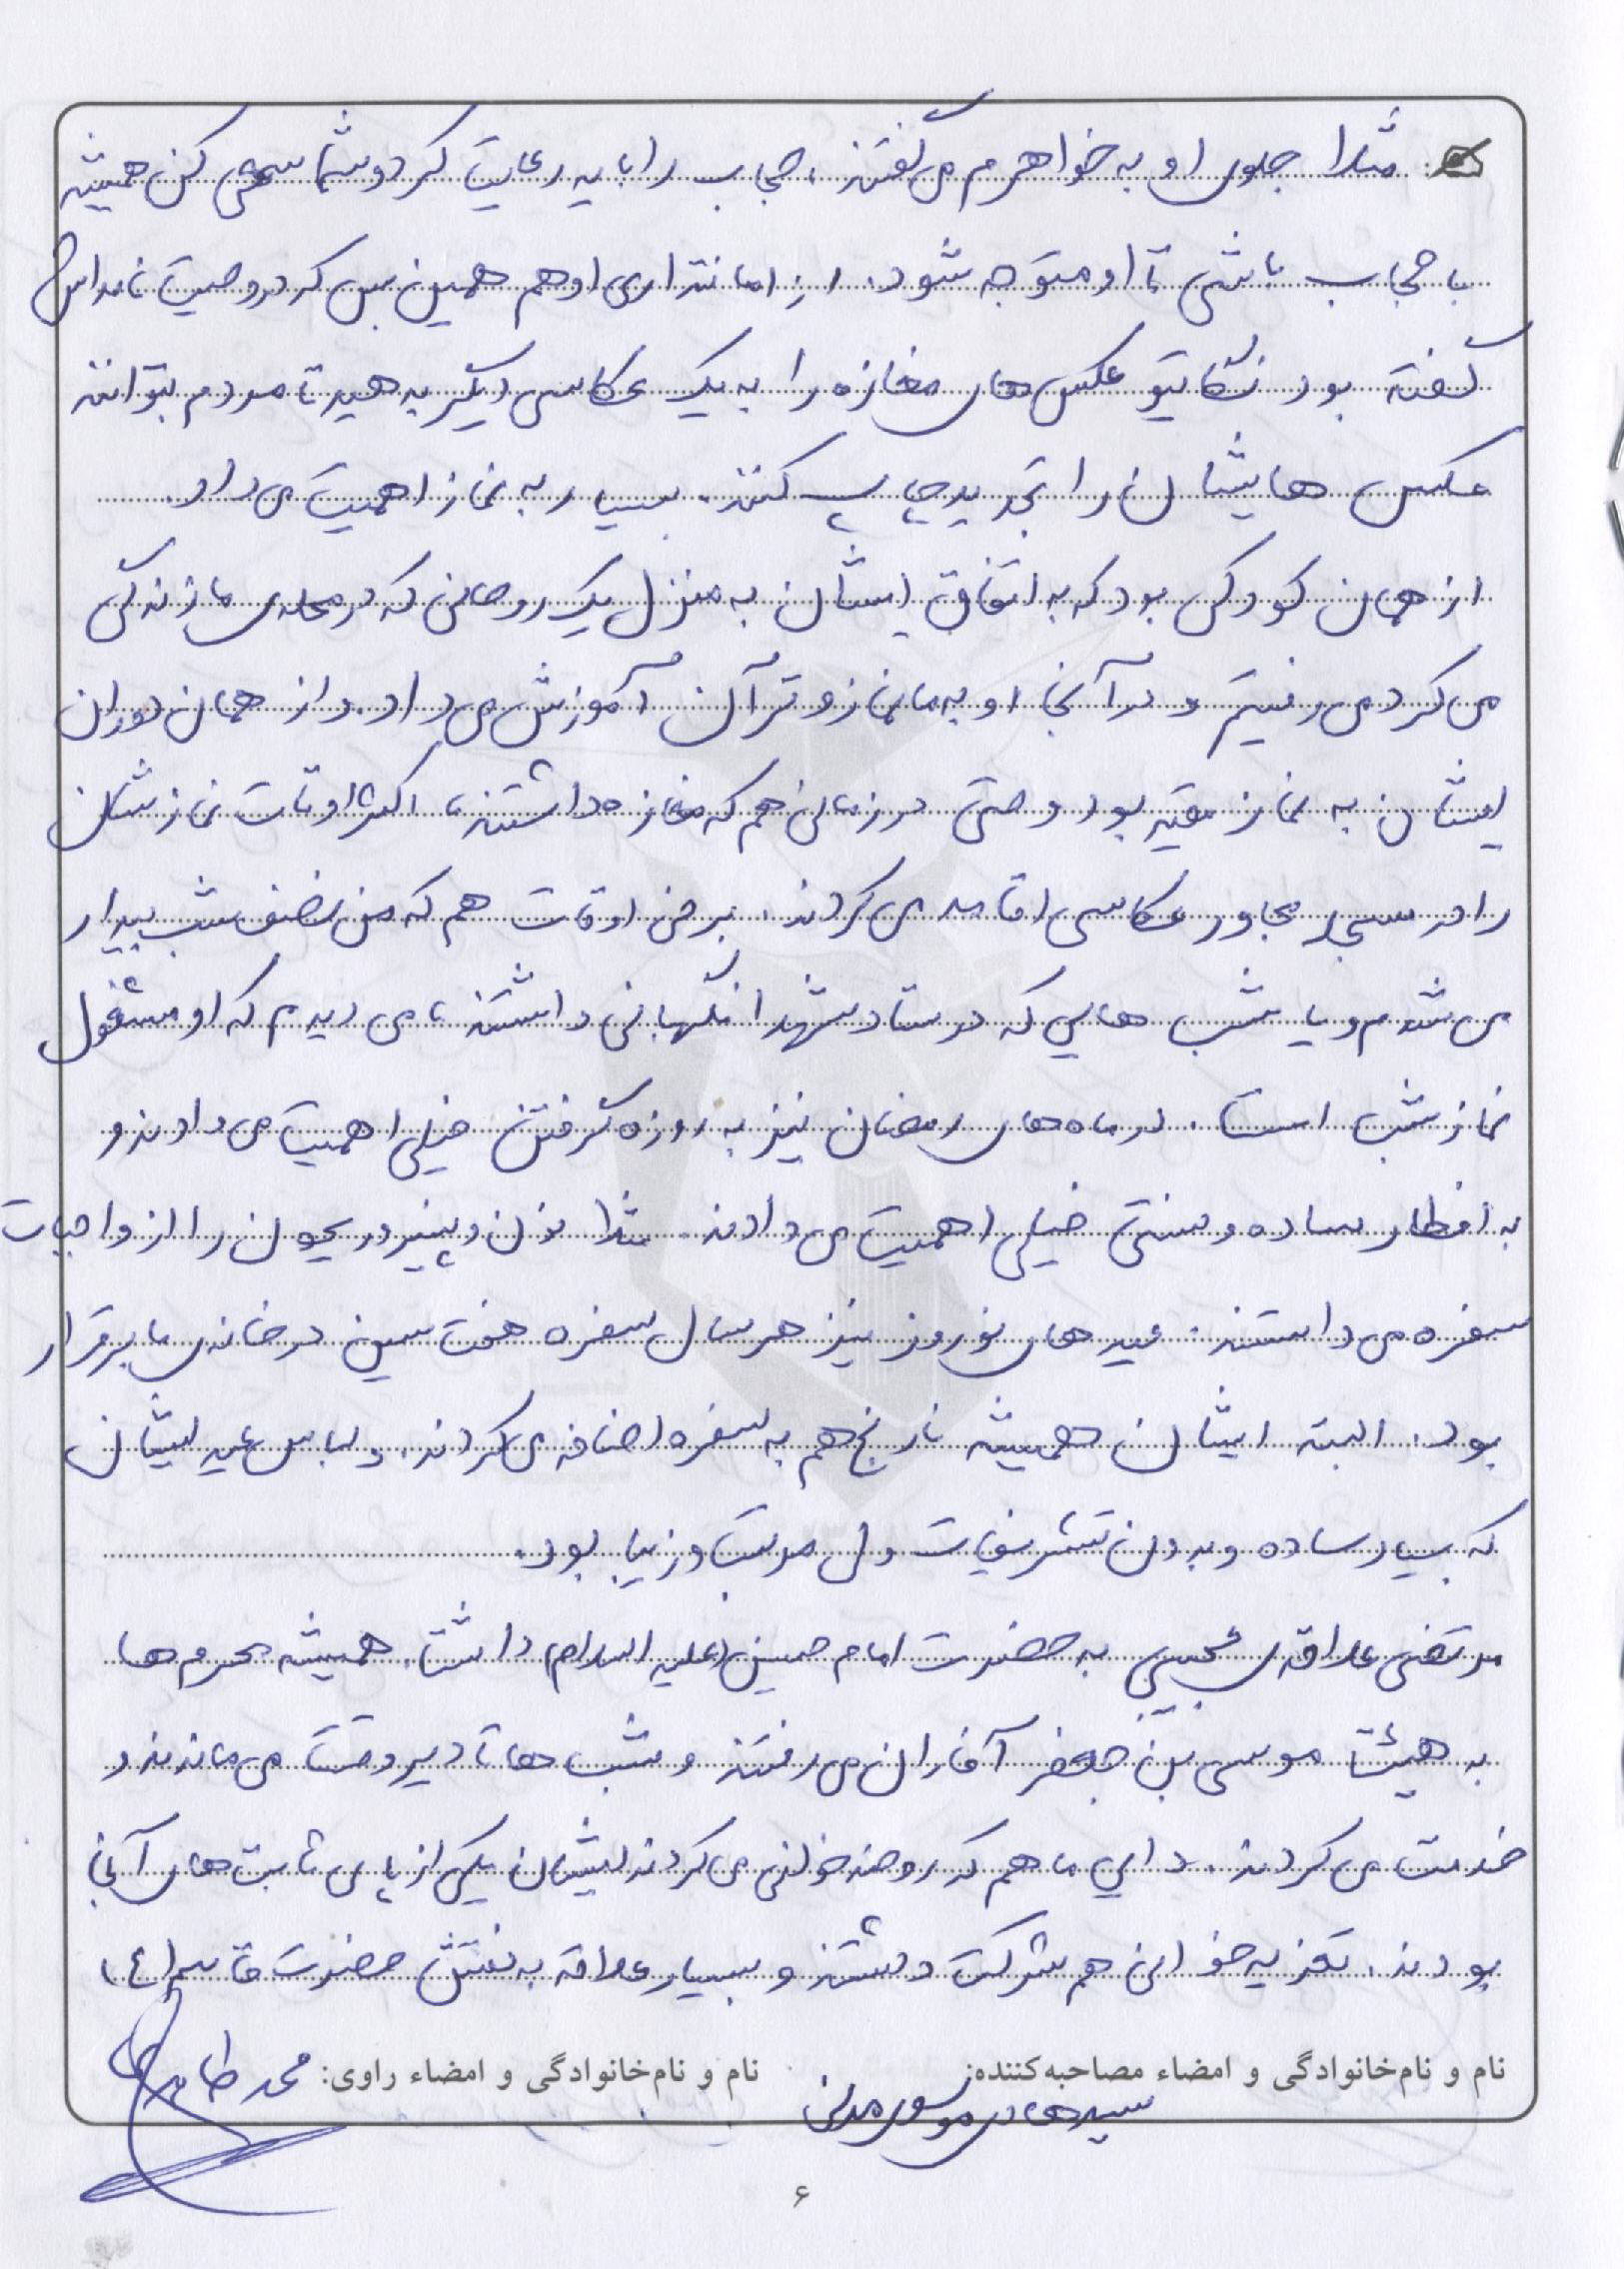 مثلا جلوی او به خواهرم می گفتند، حجاب را باید رعایت کرد و شما سعی کن همیشه
با حجاب باشی تا او متوجه شود. از امانتداری او هم همین بس که در وصیت نامه اش
گفته بود نگاتیو عکس های مغازه را به یک عکاسی دیگر بدهید تا مردم بتوانند
عکس هایشان را تجدید چاپ کنند. بسیار به نماز اهمیت می داد.
از همان کودکی بود که به اتفاق ایشان به منزل یک روحانی که در محله ی ما زندگی
می کرد می رفتیم و در آنجا او به ما نماز و قرآن آموزش می داد. و از همان دوران
ایشان به نماز مقید بود و حتی در زمانی هم که مغازه داشتند، اکثر اوقات نمازشان
را در مسجد مجاور عکاسی اقامه می کردند. برخی اوقات هم که من نصف شب بیدار
می شدم و یا شب هایی که در ستاد شهدا نگهبانی داشتند، می دیدم که او مشغول
نماز شب است. در ماه های رمضان نیز به روزه گرفتن خیلی اهمیت می دادند و
به افطار ساده و سنتی خیلی اهمیت می دادند. مثلا نان و پنیر و ریحون را از واجبات
سفره می دانستند. عیدهای نوروز نیز هر سال سفره هفت سین در خانه ی ما برقرار
بود. البته ایشان همیشه نارنج هم به سفره اضافه می کردند. و لباس عید ایشان
که بسیار ساده و بدون تشریفات ولی مرتب و زیبا بود.
مرتضی علاقه ی عجیبی به حضرت امام حسین (علیه السلام) داشت. همیشه محرم ها
به هیئت موسی بن جعفر آفاران می رفتند و شب ها تا دیر وقت می ماندند و
خدمت می کردند. دایی ما هم که روضه خوانی می کردند ایشان یکی از پای ثابت های آنجا
بودند. تعزیه خوانی هم شرکت داشتند و بسیار علاقه به نقش حضرت قاسم (ع)
نام و نام‌خانوادگی و امضاء مصاحبه‌کننده: سید هادی موسوی مدنی نام و نام‌خانوادگی و امضاء راوی: محمد طاهری
۶